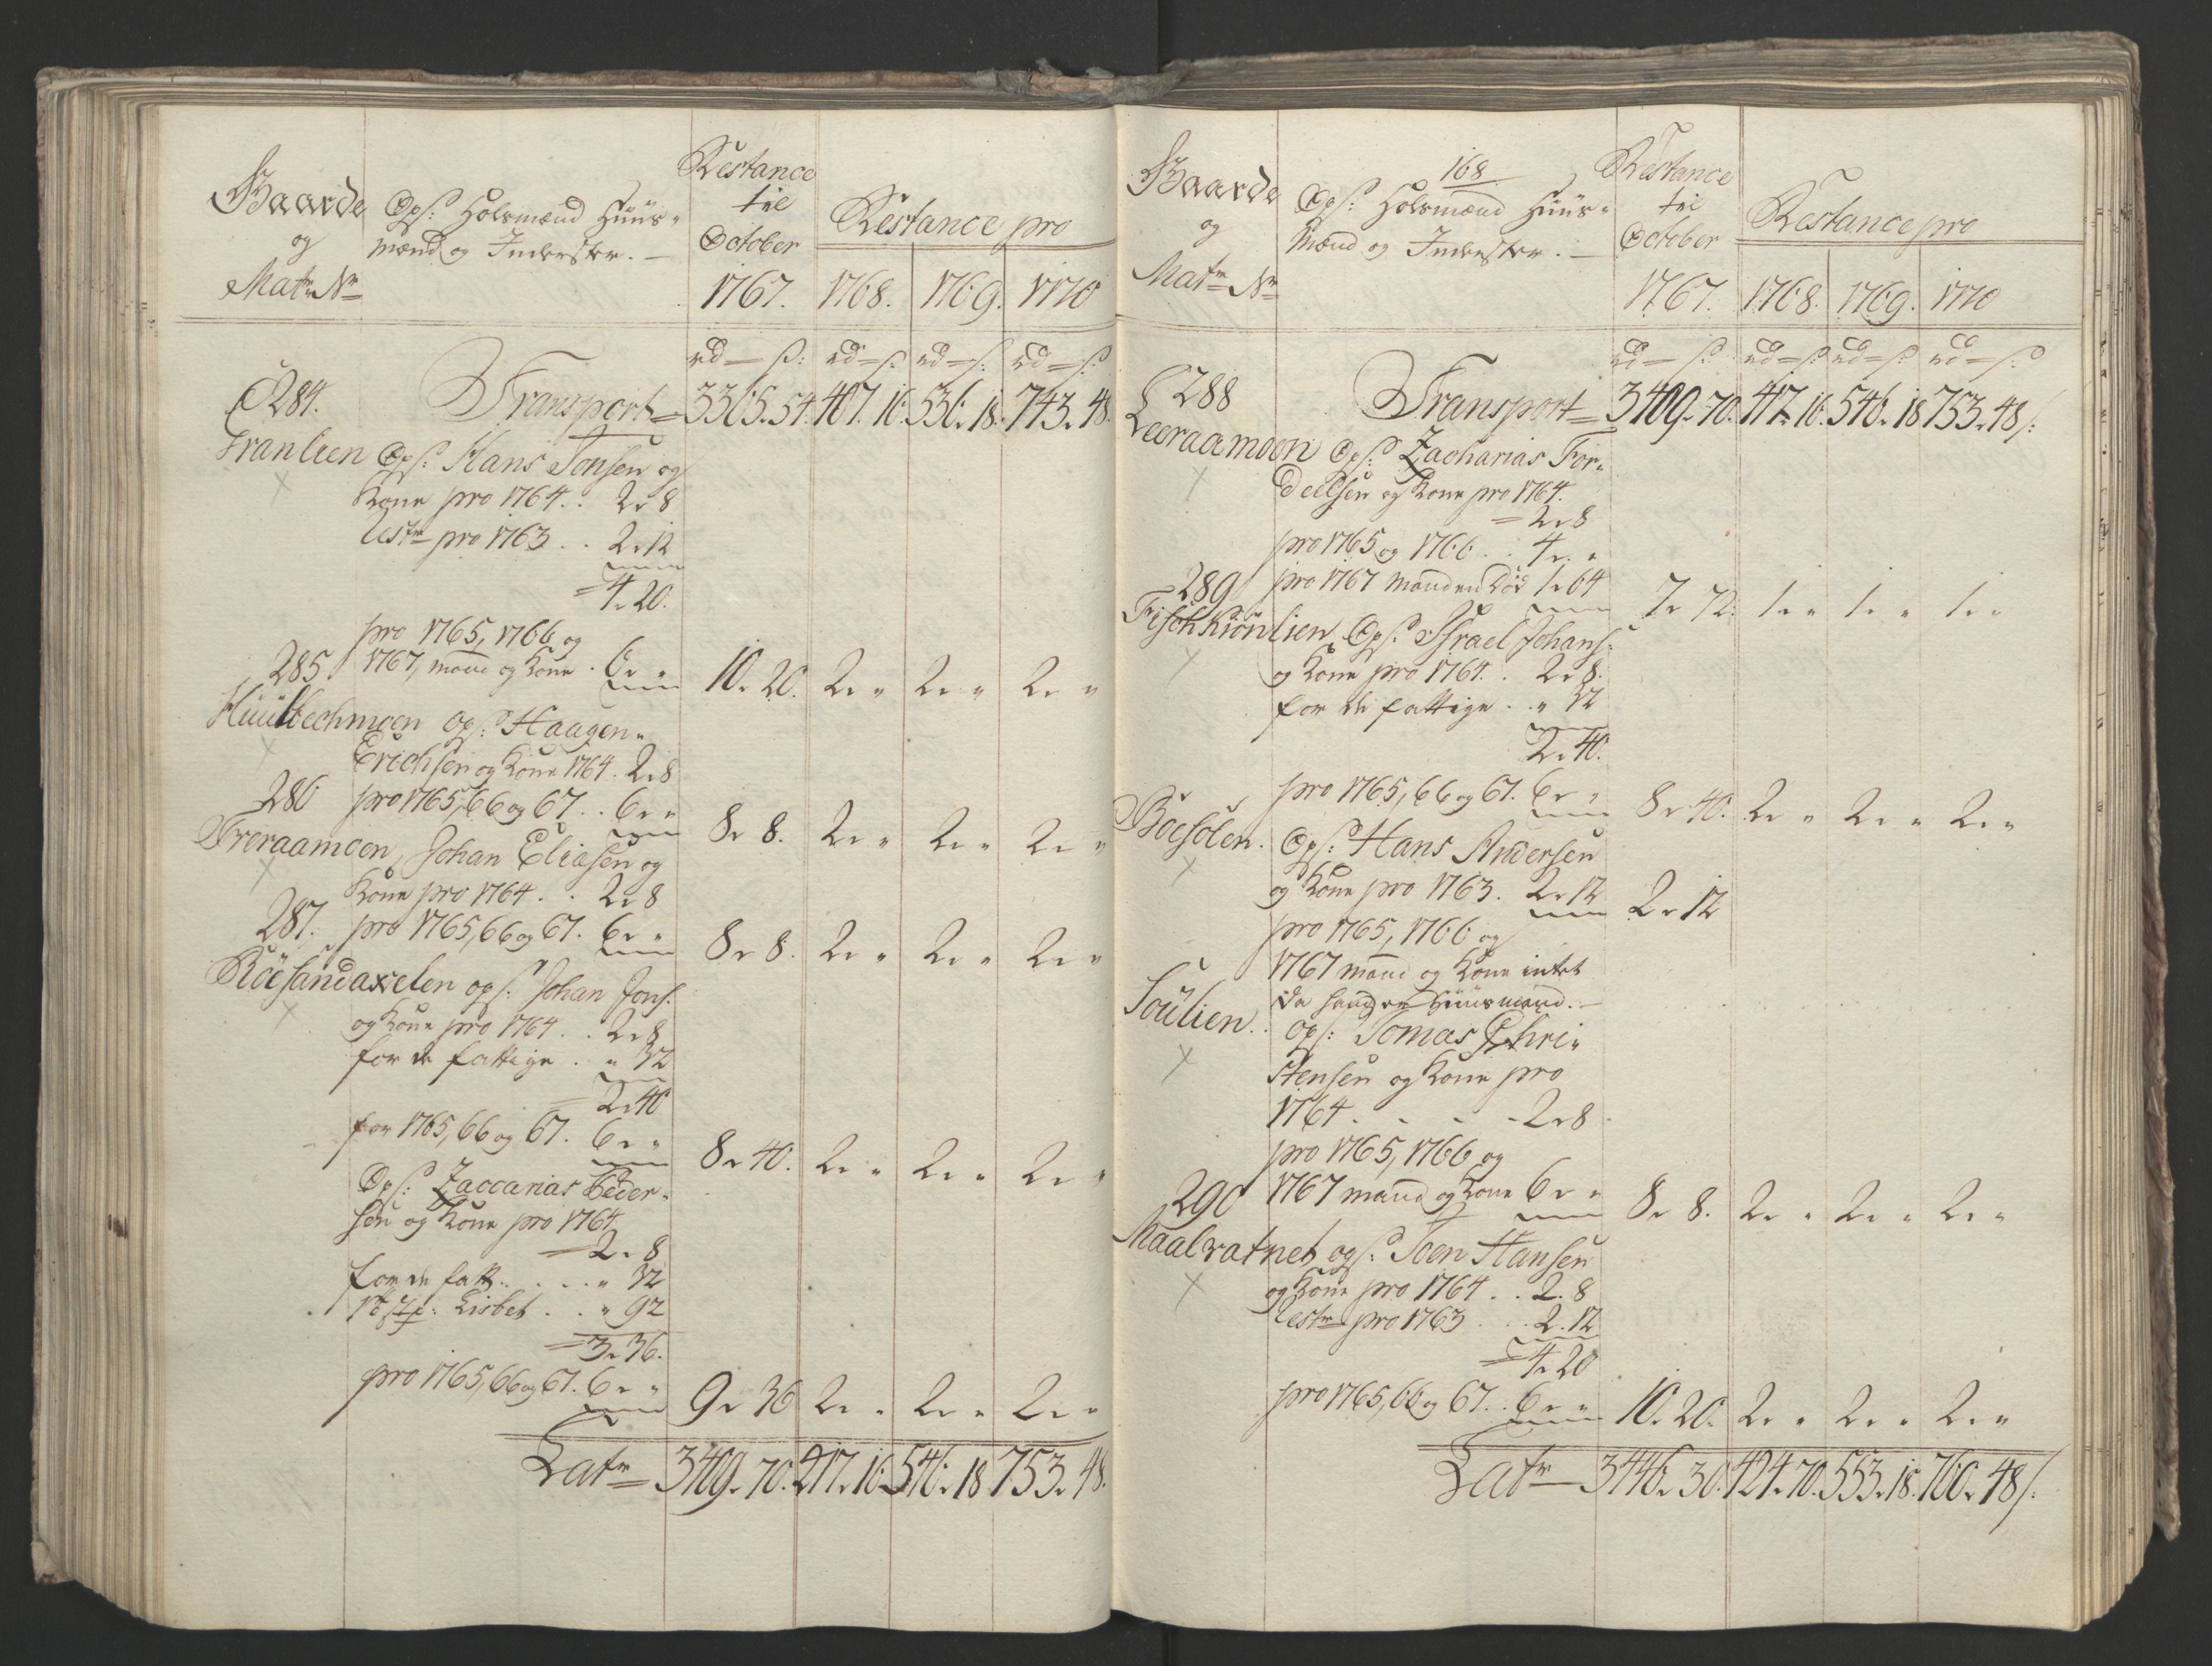 Gaarde
og
Matr Nr
Ops: Holsmænd Huus-
mænd og Inderster. —
Restance
til
October
1767.
Restance pro
1768. 1769. 1770
rd — s: rd — s: rd — s: rd — s:
284. Transport = 3365. 54. 407. 16. 536. 18. 743. 48.
Tranlien Ops: Hans Jonsen og
Kone pro 1764 . . 2 " 8
Restr pro 1763 . . 2 " 12
= 4 " 20.
pro 1765, 1766 og
285 1767, mand og Kone . 6 " " 10 " 20. 2 " " 2 " " 2 " "
Huulbechmoen Ops: Haagen
Erichsen og Kone 1764 . 2 " 8
286 pro 1765, 66 og 67 . . 6 " " 8 " 8. 2 " " 2 " " 2 " "
Treraamoen, Johan Eliasen og
Kone pro 1764 . . 2 " 8
287. pro 1765, 66 og 67. 6 " " 8 " 8. 2 " " 2 " " 2 " "
Röesandaxelen ops: Johan Jons:
og Kone pro 1764 . . 2 " 8
for de fattige . " 32
= 2 " 40
for 1765, 66 og 67. 6 " " 8 " 40. 2 " " 2 " " 2 " "
Ops: Zaccarias Peder-
sen og Kone pro 1764
= 2 " 8
for de fatt: . . . " 32
Lisbet . . " 92
= 3 " 36.
pro 1765, 66 og 67. 6 " " 9 " 36 2 " " 2 " " 2 " "
Latr = 3409. 70. 417. 16. 546. 18 753. 48.
168
Gaarde
og
Matr Nr
Ops: Holsmænd Huus-
mænd og Inderster. —
Restance
til
October
1767.
Restance pro
1768. 1769. 1770
rd — s: rd — s: rd — s: rd — s:
288 Transport = 3409. 70. 417. 16. 546. 18 753. 48 s:
Leeraamoen Ops: Zacharias For-
deelsen og Kone pro 1764.
= 2 " 8
pro 1765 og 1766 . . 4 " "
289 pro 1767 manden död 1 " 64 7 " 72. 1 " " 1 " " 1 " "
Fischkiönlien, Ops: Israel Johans:
og Kone pro 1764 . . 2 " 8.
for de fattige . . " 32
2 " 40.
pro 1765, 66 og 67. 6 " " 8 " 40. 2 " " 2 " " 2 " "
Böesölen. Ops: Hans Andersen
og Kone pro 1763. 2 " 12 2 " 12
pro 1765, 1766 og
1767 mand og Kone intet
da hand er Huusmand. —
Soulien. Ops: Tomas Chri-
stensen og Kone pro
1764 . . . - 2 " 8
pro 1765, 1766 og
290 1767 mand og Kone 6 " " 8 " 8. 2 " " 2 " " 2 " "
Maalvatnet ops: Joen Hansen
og Kone pro 1764 . . 2. 8
Restr pro 1763 . . . 2. 12
= 4 " 20
pro 1765, 66 og 67. . 6 " " 10 " 20. 2 " " 2 " " 2 " "
Latr — 3446. 30. 424. 70. 553. 18. 760. 48 s: